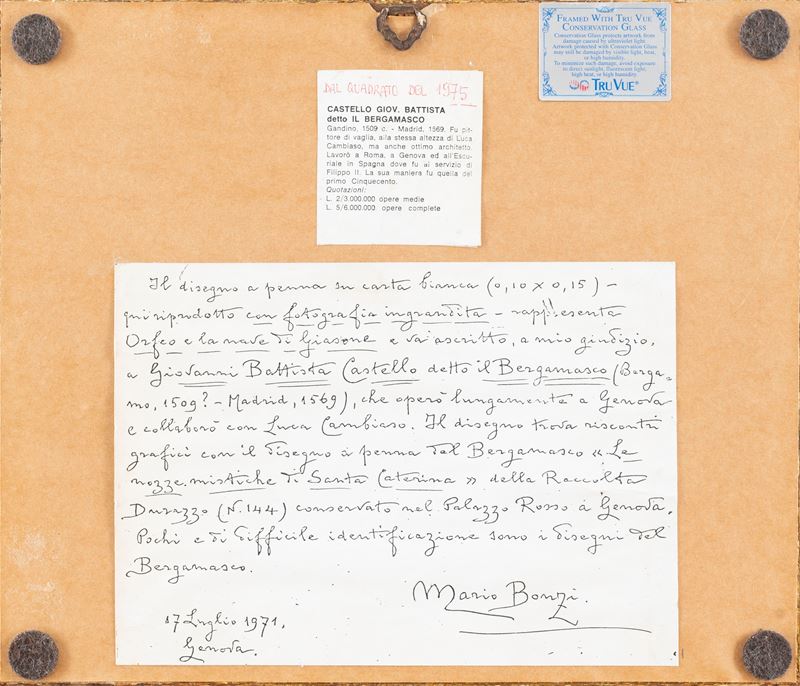 FRAMED WITH TRU VUE
CONSERVATION GLASS
Conservation Glass protects artwork from
damage caused by ultraviolet light.
Artwork protected with Conservation Glass
may still be damaged by visible light, heat,
or high humidity.
To minimize such damage, avoid exposure
to direct sunlight, fluorescent light,
high heat, or high humidity.
TRU VUE®
DAL QUADRATO DEL 1975
CASTELLO GIOV. BATTISTA
detto IL BERGAMASCO
Gandino, 1509 c. - Madrid, 1569. Fu pit-
tore di vaglia, alla stessa altezza di Luca
Cambiaso, ma anche ottimo architetto.
Lavorò a Roma, a Genova ed all'Escu-
riale in Spagna dove fu al servizio di
Filippo II. La sua maniera fu quella del
primo Cinquecento.
Quotazioni:
L. 2/3.000.000 opere medie
L. 5/6.000.000 opere complete
Il disegno a penna su carta bianca (0,10 x 0,15) -
qui riprodotto con fotografia ingrandita - rappresenta
Orfeo e la nave di Giasone e va ascritto, a mio giudizio,
a Giovanni Battista Castello detto il Bergamasco (Berga-
mo, 1509? - Madrid, 1569), che operò lungamente a Genova
e collaborò con Luca Cambiaso. Il disegno trova riscontri
grafici con il disegno a penna del Bergamasco « Le
nozze mistiche di Santa Caterina » della Raccolta
Durazzo (N. 144) conservato nel Palazzo Rosso a Genova.
Pochi e di difficile identificazione sono i disegni del
Bergamasco.
Mario Bonzi.
17 Luglio 1971.
Genova.